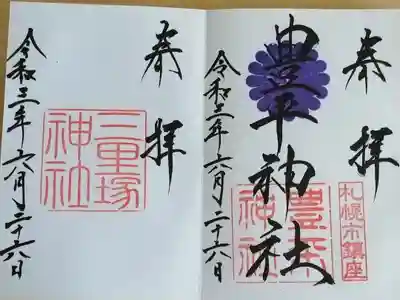 奉拝
札幌市鎮座
豊平神社
豊平神社
令和三年六月二十六日
奉拝
三里塚神社
令和三年六月二十六日